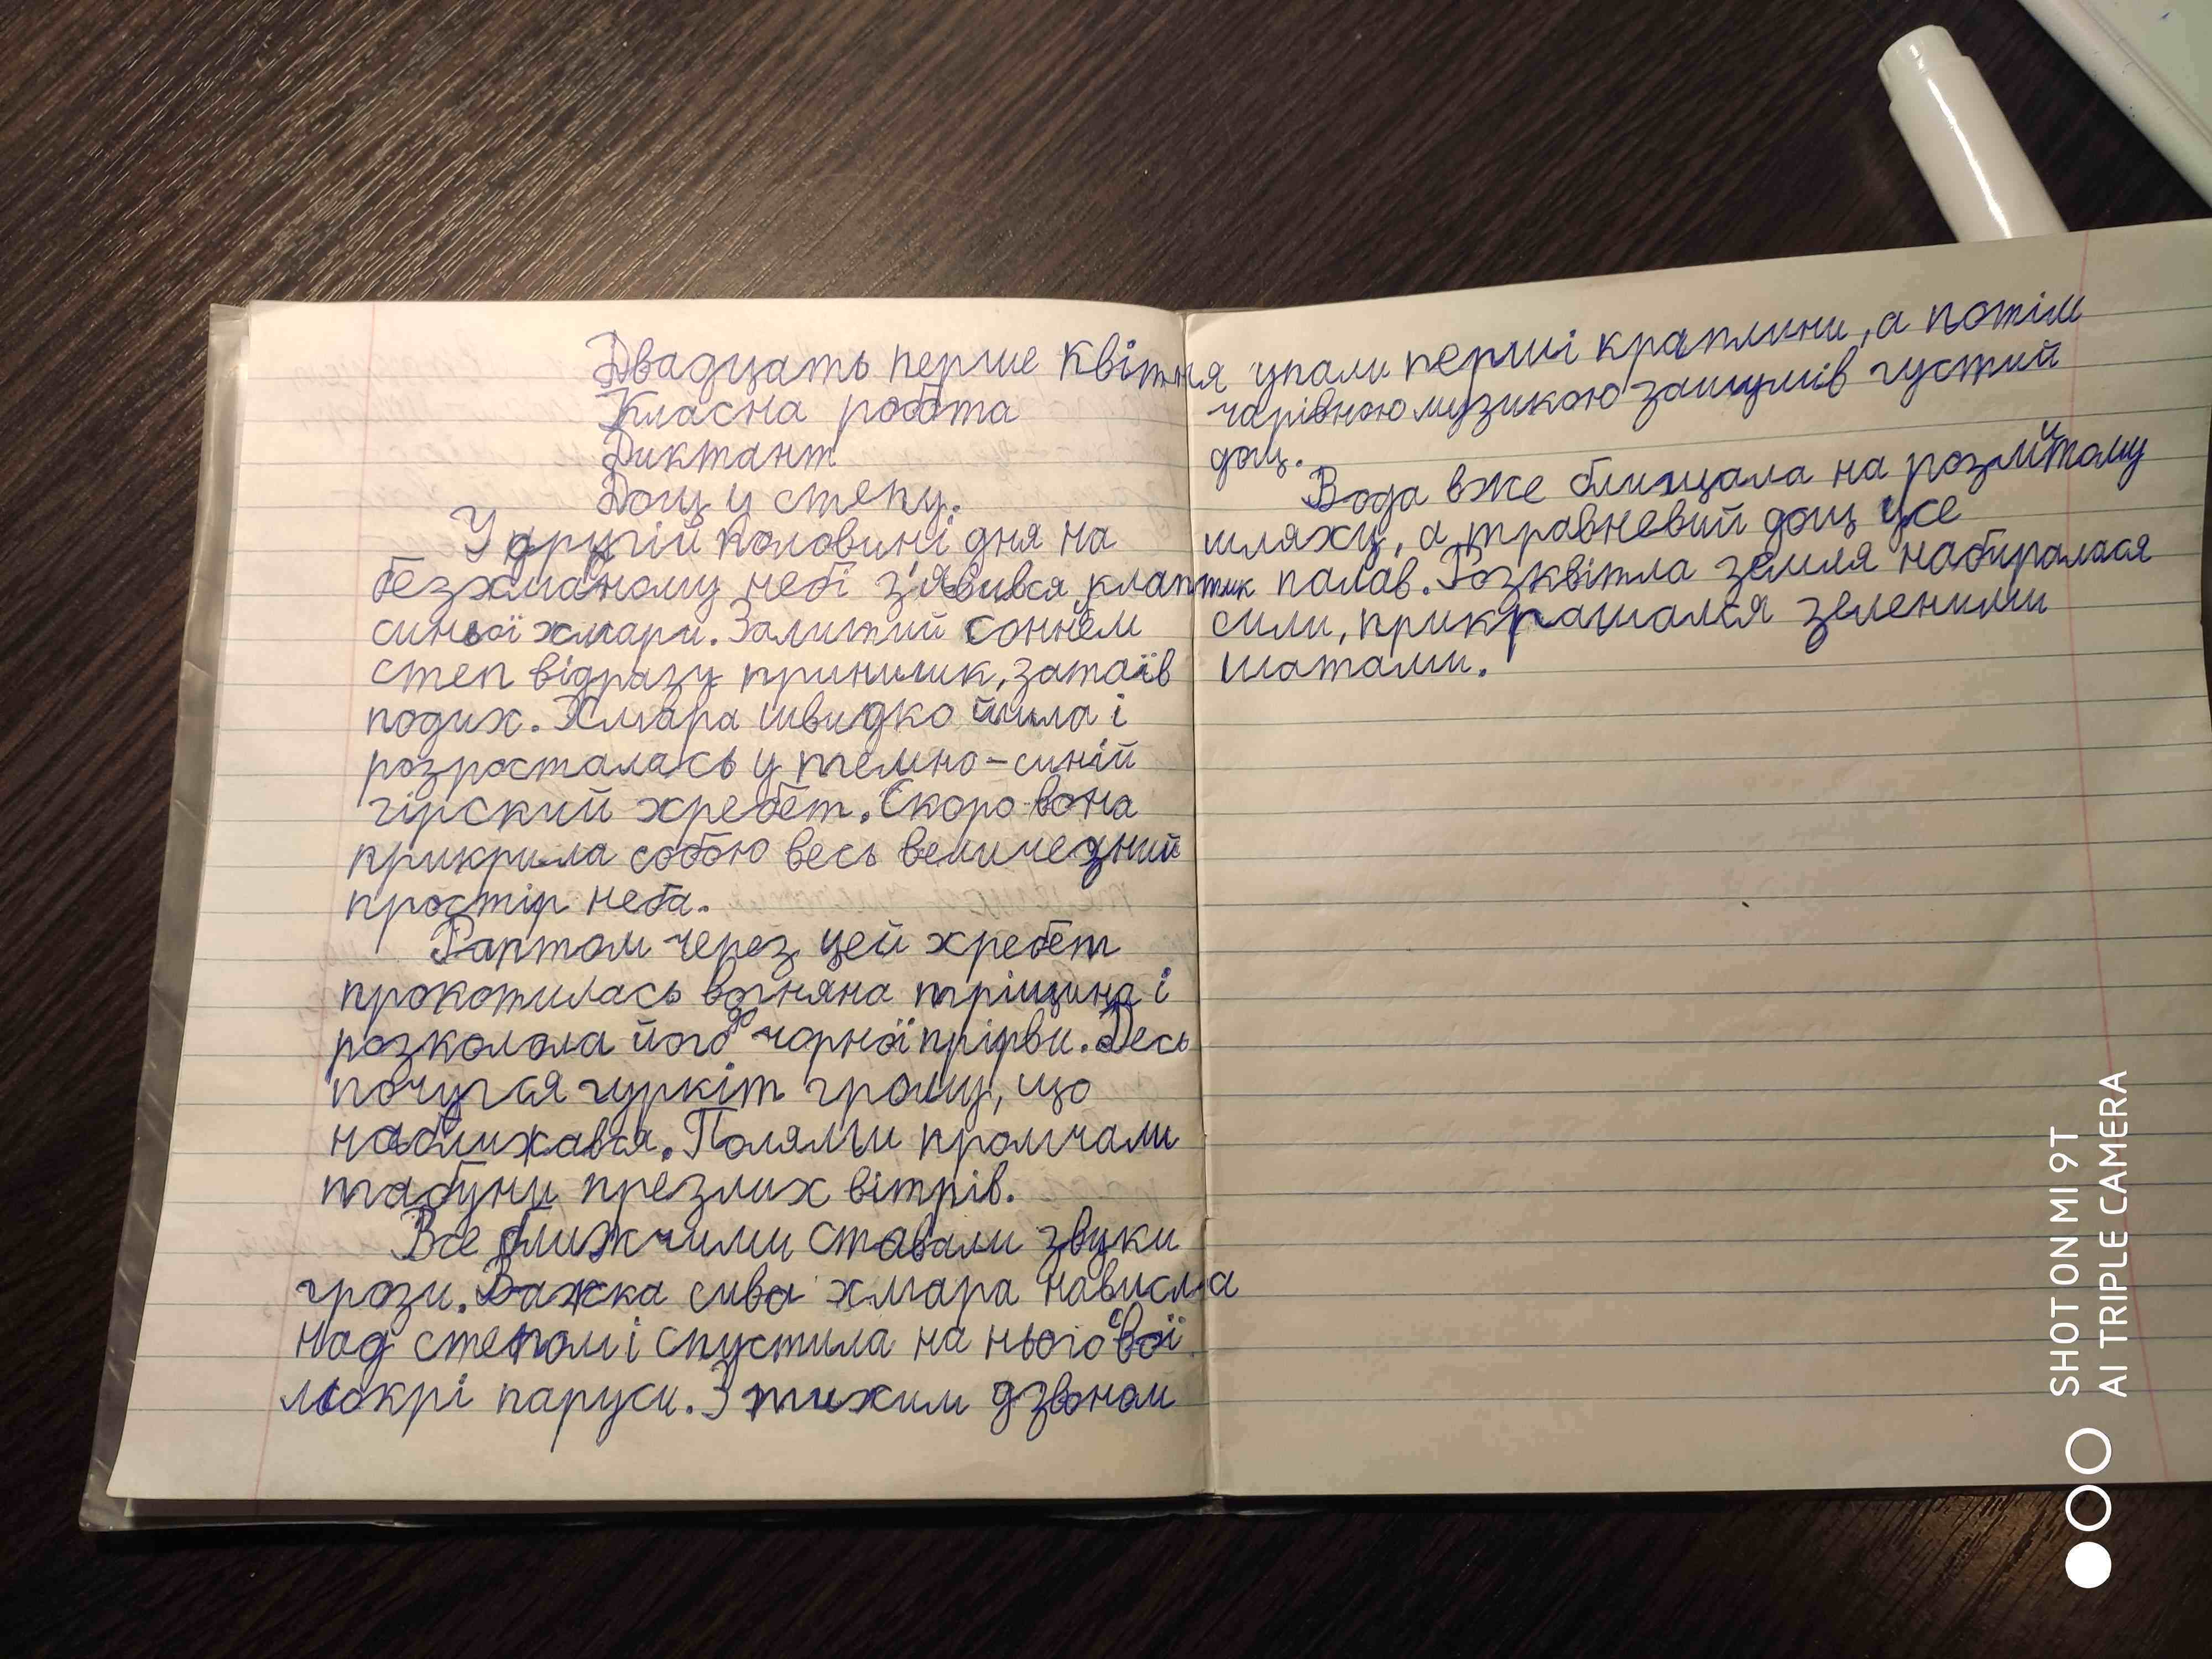 Двадцять перше квітня
Класна робота
Диктант
Дощ у степу.
У другій половині дня на
безхмарному небі з'явився клаптик
синьої хмари. Залитий сонцем
степ відразу принишк, затаїв
подих. Хмара швидко йшла і
розросталась у темно-синій
гірский хребет. Скоро вона
прикрила собою весь величезний
простір неба.
Раптом через цей хребет
прокотилась вогняна тріщина і
розколола його до чорної прірви. Десь
почувся гуркіт грому, що
наближався. Полями промчали
табуни презлих вітрів.
Все ближчими ставали звуки
грози. Важка сива хмара нависла
над степом і спустила на нього свої
мокрі паруси. З тихим дзвоном
упали перші краплини, а потім
чарівною музикою зашумів густий
дощ.
Вода вже блищала на розмитому
шляху, а травневий дощ усе
палав. Розквітла земля набиралася
сили, прикрашалася зеленими
шатами.
SHOT ON MI 9T
AI TRIPLE CAMERA